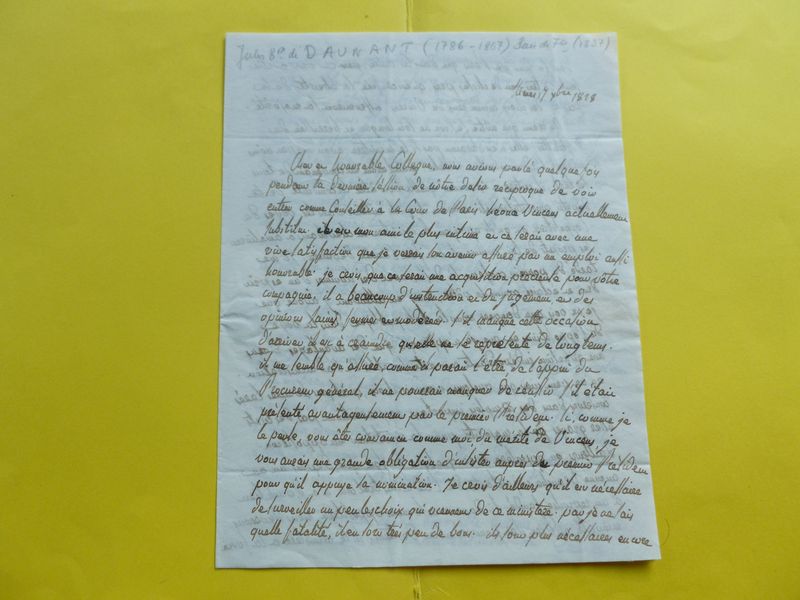 Jules Bon de DAUNANT (1786-1867) Pair de Fce (1837)
Nîmes 17 9bre 1828
Cher et honorable Collegue, nous avions parlé quelque fois
pendant la derniere session de nôtre desir réciproque de voir
entrer comme Conseiller à la Cour de Paris Léone Vincens actuellement
substitut. il est mon ami le plus intime et ce serait avec une
vive satisfaction que je verrais son avenir assuré par un emploi aussi
honorable. je crois que ce serait une acquisition précieuse pour vôtre
compagnie, il a beaucoup d'instruction et du jugement et des
opinions saines fermes et modérées. s'il manque cette occasion
d'arriver il est à craindre qu'elle ne se représente de longtems.
il me semble qu'assuré, comme il parait l'être de l'appui du
Procureur général, il ne pourrait manquer de réussir s'il était
présenté avantageusement par le premier Président. si, comme je
le pense, vous êtes convaincu comme moi, du mérite de Vincens, je
vous aurais une grande obligation d'insister auprès du premier Président
pour qu'il appuye sa nomination. Je crois d'ailleurs qu'il est nécessaire
de surveiller un peu les choix qui viennent de ce ministère. par je ne sais
quelle fatalité, il en sort très peu de bons. ils sont plus nécessaires encore